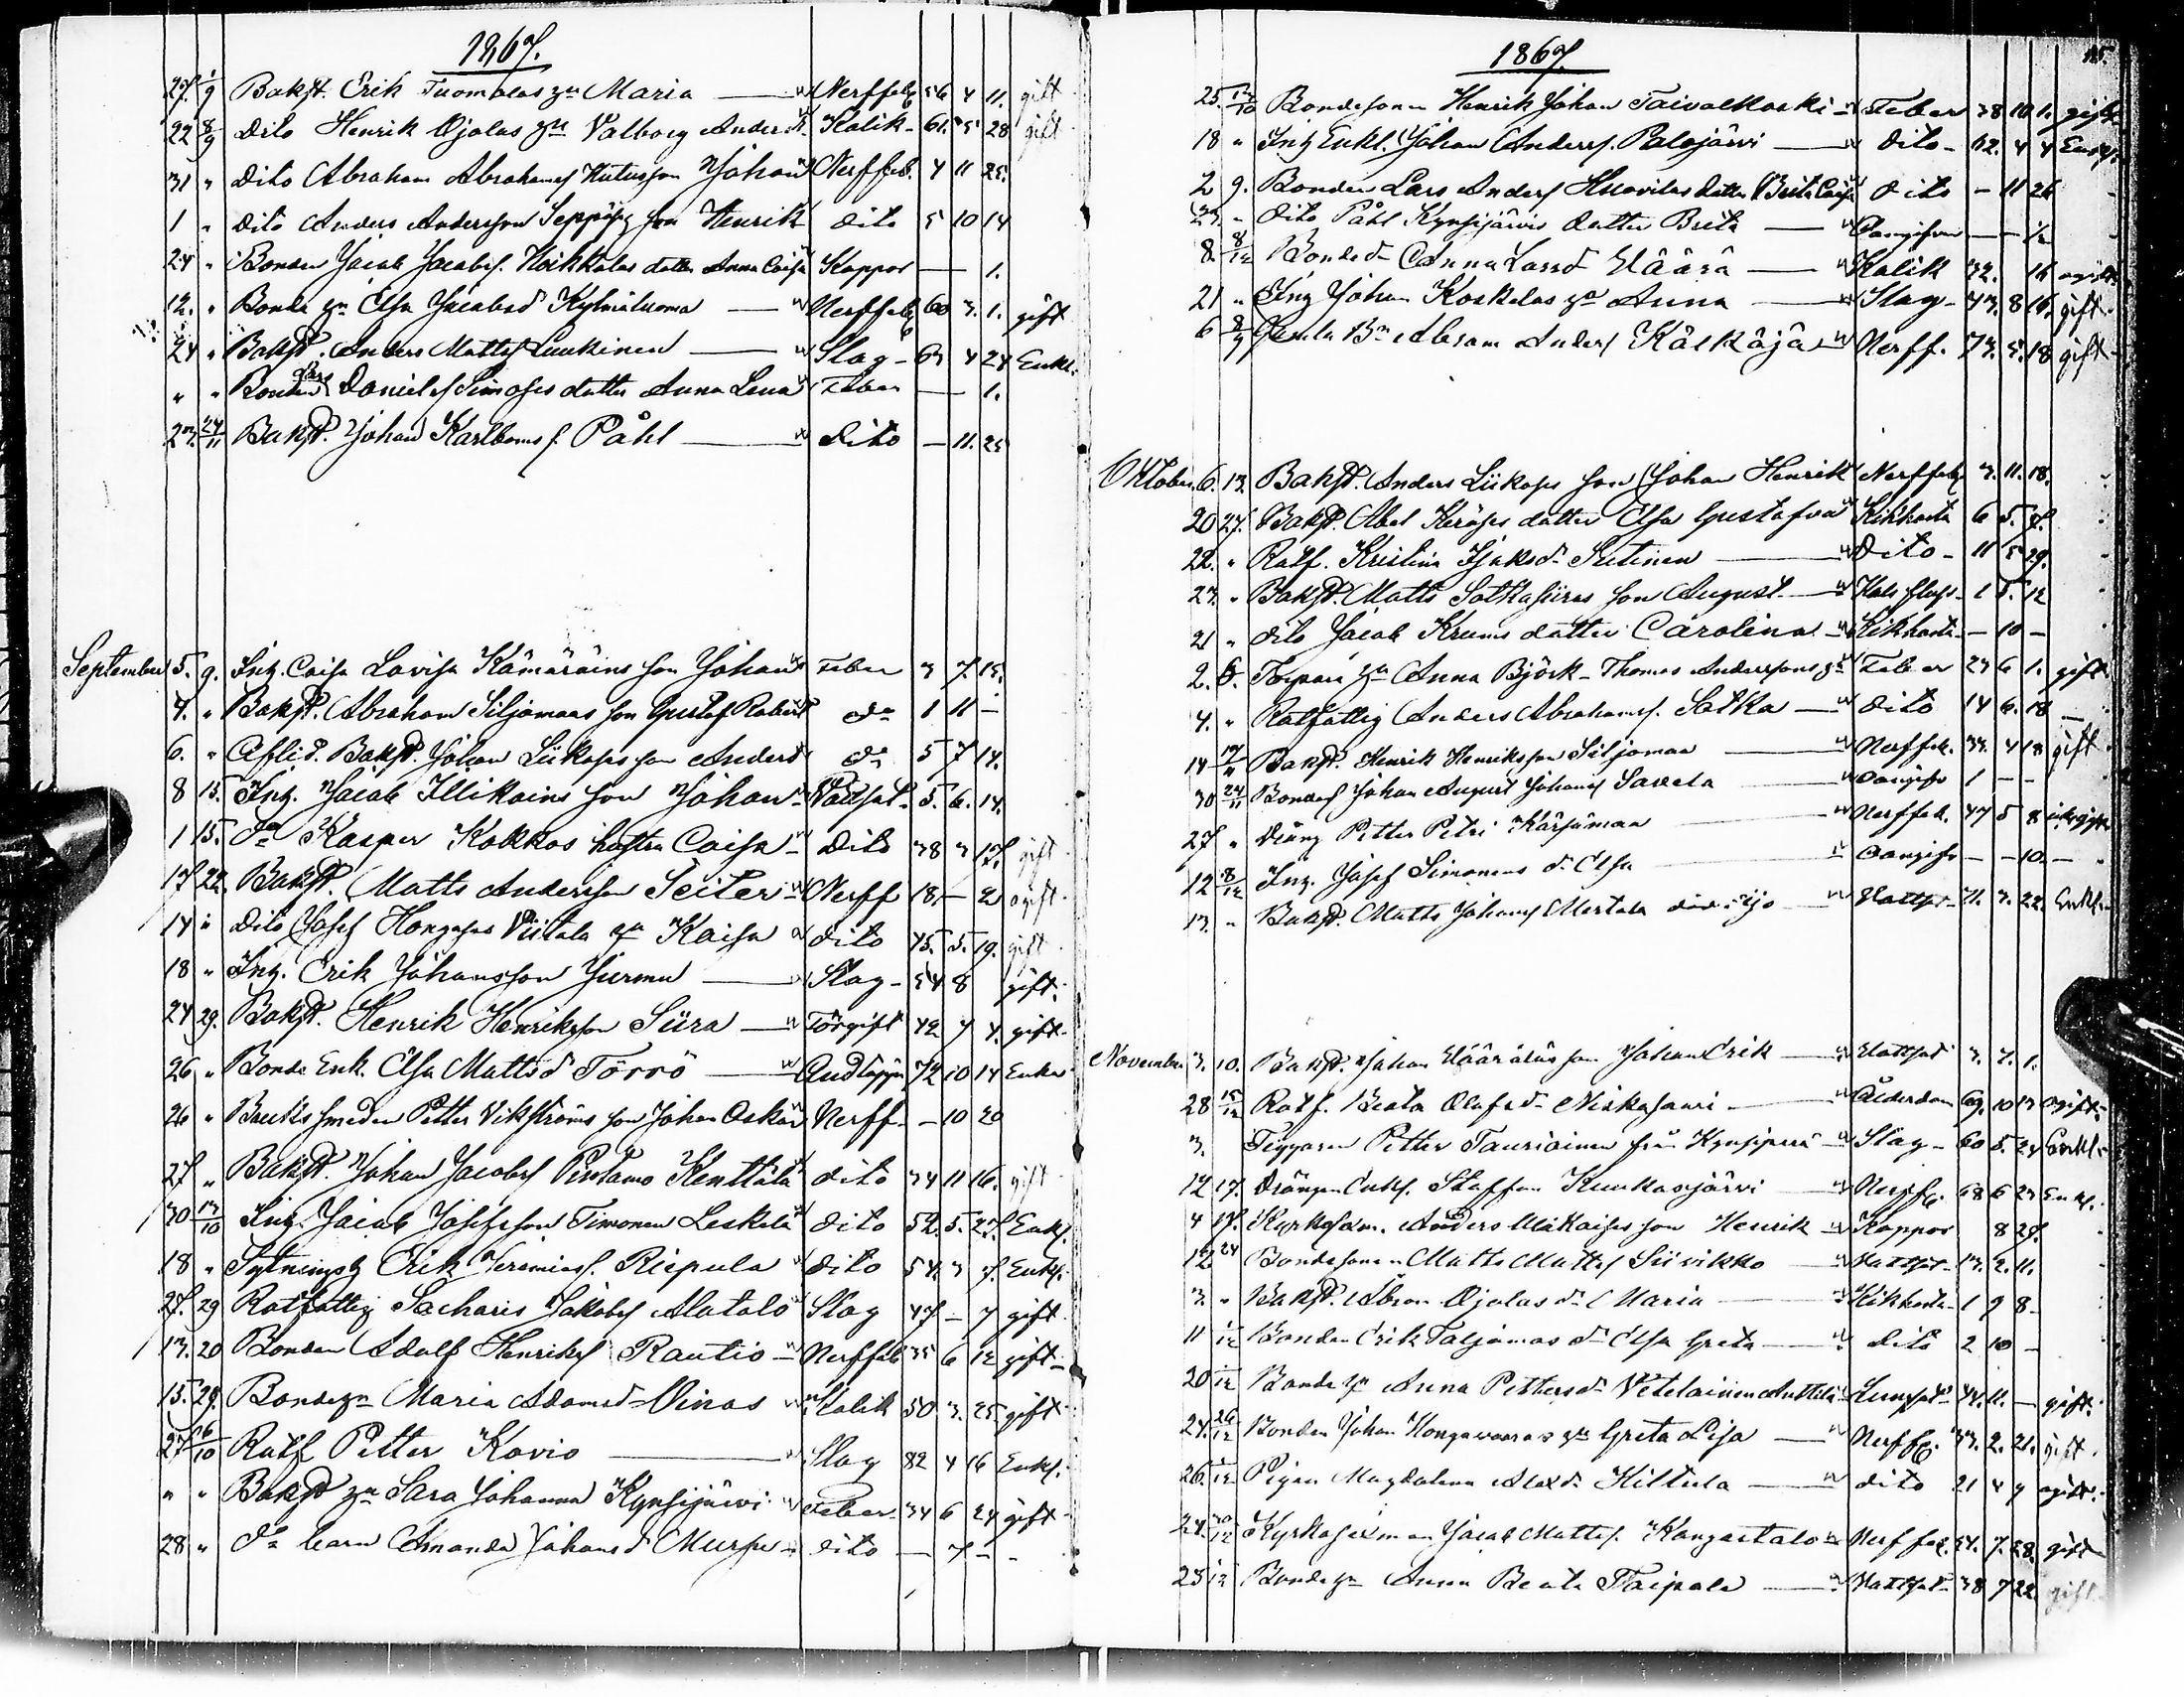 1867.
27. 1/9 Bakst. Erik Tuomalas hu Maria Nerffeb 56 4 11. gift
22 8/9 Dito Henrik Ojalas hu Valborg Andersd. Kolik- 61. 5 28 gift
31 " Dito Abraham Abrahamsf Hutusson Johan Nerffeb. 4 11 25.
1 " Dito Anders Andersson son Henrik dito 5 10 14
24 " Bonden Jacob Jacobsf. Hoikkalas dotter Anna Caisa Koppor — 1.
12. " Bonde hu Elsa Jacobsd Kylmäluoma Nerffeb 60 3. 1. gift
24 " Bakst. Anders Mattsf Luukinen Slag- 63 4 24 Enkl.
" " Bonden Lars Danielsf Simoses dotter Anna Lena Feber — 1.
23. 24/11 Bakst. Johan Karlboms s. Påhl Dito — 11. 25
September 5. 9. Inh. Caisa Lovisa Kämäräins son Johan Feber 3 7. 15.
4. " Bakst. Abraham Siljamaas son Gustaf Robert do 1 11 —
6. " Aflid. Bakst. Johan Liikases son Anders do 5 7 14.
8 15. Inh. Jacob Illikains son Johan Vattsot. 5. 6. 14.
1 15. do Kasper Kokkos hustru Caisa Dito 38 3 17. gift
17 22. Bakst. Matts Andersson Seiter Nerff 18. — 2 ogift.
14 " Dito Josef Hongases Viitala hu Kaisa dito 45. 5. 19. gift
18 " Inh. Erik Johansson Jurmu Slag- 54 8 gift.
24 29. Bakst. Henrik Henriksson Siira Förgift 42 7 4. gift.
26 " Bonde Enk. Elsa Mattsd Törrö Andtäppa 72 10 14 Enka
26 " Bruks smeden Petter Vikströms son Johan Oskar Nerff. — 10 20
27 " Bakst. Johan Jacobsf Pintamo Kenttälä dito 34 11 16. gift
30 13/10 Inh. Jacob Josefsson Timonen Leskelä dito 52. 5. 27. Enkl.
18 " Sytningsh Erik Jeremiasf. Riepula dito 54. 3 7. Enkl.
27. 29 Rotfattig Sacharis Jakobsf Alatalo Slag 47. — 7 gift
13. 20 Bonden Adolf Henriksf Rautio Nerffeb 35 6 12 gift
15. 29. Bondehu Maria Adamsd Vinas Kolik 50 3. 25 gift
27 6/10 Rotf Petter Kovio Slag 82 4 16 Enkl.
" " Bakst hu Sara Johanna Kynsijärvi Feber. 34 6 24 gift
28 " do barn Amanda Johansd Murpu dito — 7 — -
1867. 115.
25. 13/10 Bondesonen Henrik Johan Taivalkoski Feber 38 10 1. gift
18 " Inh Enkl. Johan Andersf. Palojärvi dito- 62. 4 4 Enkl.
2 9. Bonden Lars Andersf Huovilas dotter Brita Caisa dito — 11 26
23. " dito Påhl Kynsijärvis dotter Brita Oangifven — — ½
8. 8/12 Bonded Anna Larsd Määrä Kolik 32. 16 ogift
21 " Inh Johan Koskelas hu Anna Slag- 43. 8 16. gift.
6 8/9 Gamla Bn Abram Andersf Kälkäjä Nerff. 73. 5. 18 gift
Oktober 6. 13. Bakst. Anders Liikases son Johan Henrik Nerffeb 3. 11. 18.
20 27. Bakst. Abel Keräses dotter Elsa Gustafva Kikhosta 6 5. 7.
22. " Rotf. Kristina Isaksd Sutinen Dito- 11 5 29.
23. " Bakst. Matts Satkasiiras son August 1 5. 12
21 " dito Jacob Krums dotter Carolina Kikhosta — 10 —
2. 6. Torpare hu Anna Björk- Thomas Anderssons hu Feber 23 6 1. gift
4. " Rotfattig Anders Abrahamsf. Satka dito 14 6. 18
14 17/11 Bakst. Henrik Henriksson Siljamaa Nerffeb. 34. 4 18 gift
30 24/11 Bondes Johan August Johansf Savela Oangifv 1 — —
27 " Dräng Petter Petri Kärsämaa Nerffeb. 47 5 8
12 8/12 Inh. Josef Simonens d. Elsa Oangifv — — 10. —
13. " Bakst. Matts Johansf Mertala död i Ijo Vattsot 71. 3. 22. Enkl.
November 3. 10. Bakst. Johan son Johan Erik Vattsot 7. 7. 1.
28 15/12 Rotf. Beata Olofsd Niskasaari Ålderdom 69. 10 13 ogift
3. Tiggaren Petter Tauriainen från Slag- 60 5. 24 Enkl.
12 17. Drängen Enkl. Staffan Kuukasjärvi Nerff. 68 6 23 Enkl.
4 17. Kyrkosexm. Anders Mikaises son Henrik Koppor 8 27.
12 24 Bondesonen Matts Mattsf Siivikko Vattsot 13. 2. 11.
3. " Bakst. Abram Ojalas d. Maria Kikhosta 1 9 8
11 1/12 Bonden Erik Taljamas d. Elsa Greta dito 2 10 —
20 1/12 Bonde hu Anna Pettersd Vetelainen Anttila 44. 11. — gift.
24. 26/12 Bonden Johan Hongavaaras hu Greta Lisa Nerffe. 33. 2. 21. gift.
26. 1/12 Pigan Magdalena Alexd. Hiltula dito 21 4 9 ogift.
24. 30/12 Kyrkosexman Jacob Mattsf. Kangastalo Nerffeb. 54. 7. 28. gift
23 1/12 Bonde hu Anna Beata Taipale Vattsot 38 7 22. gift